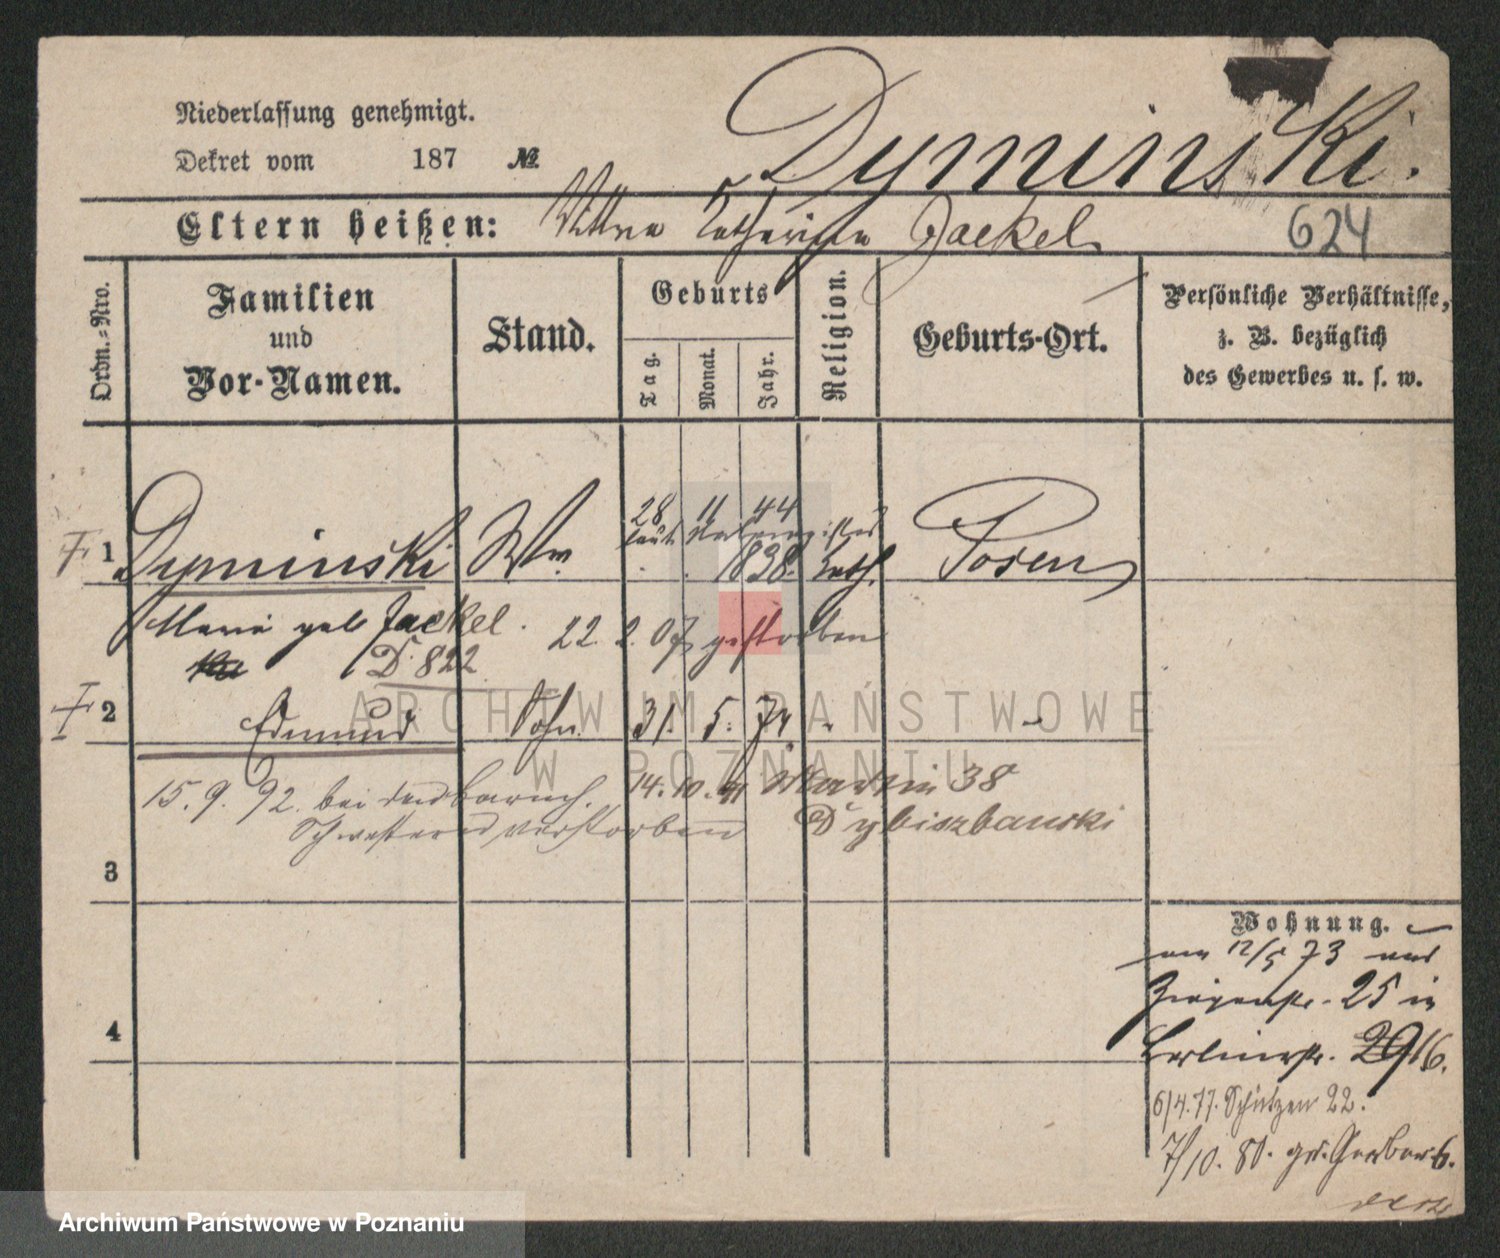 Niederlassung genehmigt.
Dekret vom 187 №
Dyminski.
Eltern heißen: Katharina Jaekel
624
Ordn.-Nro.
Familien
und
Vor-Namen.
Stand.
Geburts
Tag.
Monat.
Jahr.
Religion.
Geburts-Ort.
Persönliche Verhältnisse,
z. B. bezüglich
des Gewerbes u. s. w.
28 11 44
1 Dyminski Ww. 1838. kath. Posen
Maria geb Jaekel. 22. 2. 07 gestorben
D. 822
2 Edmund Sohn 31. 5. 74
15. 9. 92. bei 14. 10. 91 Martin 38
Schwestern verstorben Dybiszbanski
3
4
Wohnung.
am 12/5 73 aus
25 in
Berlinerstr. 29/16.
6/4.77. Schützen 22.
7/10. 80. gr. Gerber 6.
ARCHIWUM PAŃSTWOWE
W POZNANIU
Archiwum Państwowe w Poznaniu